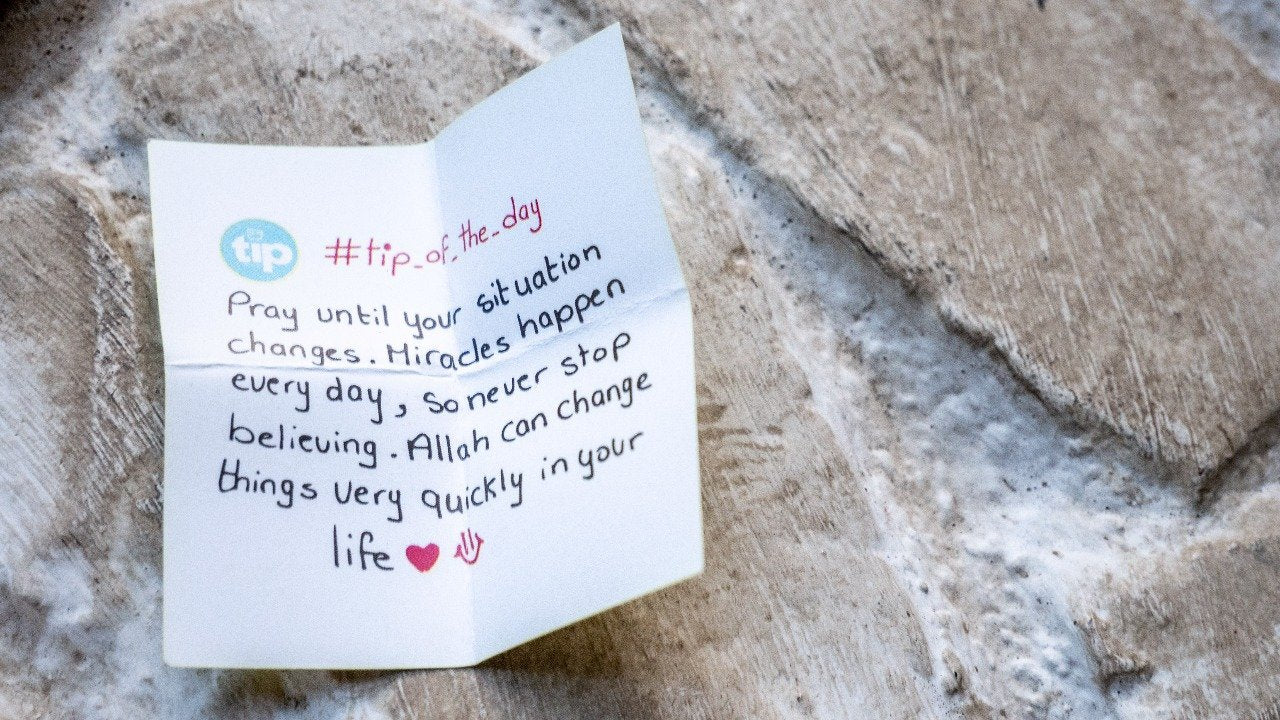 tip
#tip_of_the_day
Pray until your situation
changes. Miracles happen
every day, so never stop
believing. Allah can change
things very quickly in your
life